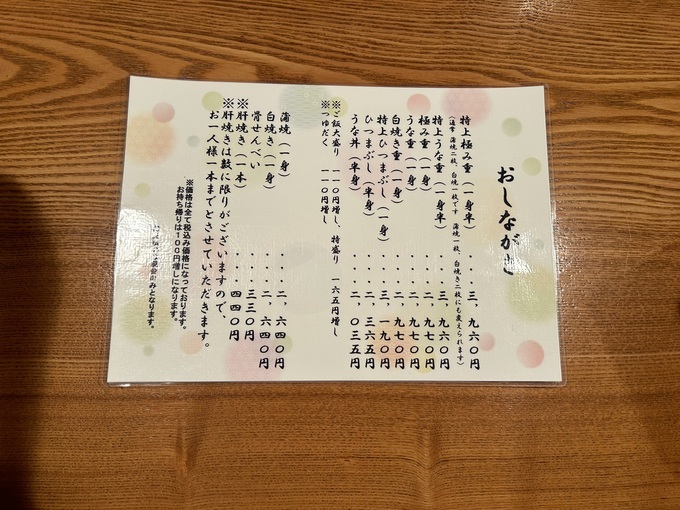 おしながき
特上極み重(一身半)・・・三、九六〇円
(通常 蒲焼二枚、白焼一枚です 蒲焼一枚、白焼き二枚にも変えられます)
特上うな重(一身半)・・・三、九六〇円
極み重(一身)・・・二、九七〇円
うな重(一身)・・・二、九七〇円
白焼き重(一身)・・・二、九七〇円
特上ひつまぶし(一身)・・・三、一九〇円
ひつまぶし(半身)・・・二、三六五円
うな丼(半身)・・・二、〇三五円
※ご飯大盛り 一一〇円増し、特盛り 一六五円増し
※つゆだく 一一〇円増し
蒲焼(一身)・・・二、六四〇円
白焼き(一身)・・・二、六四〇円
骨せんべい・・・三三〇円
※肝焼き(一本)・・・四四〇円
※肝焼きは数に限りがございますので、
お一人様一本までとさせていただきます。
※価格は全て税込み価格になっております。
お持ち帰りは100円増しになります。
みとなります。